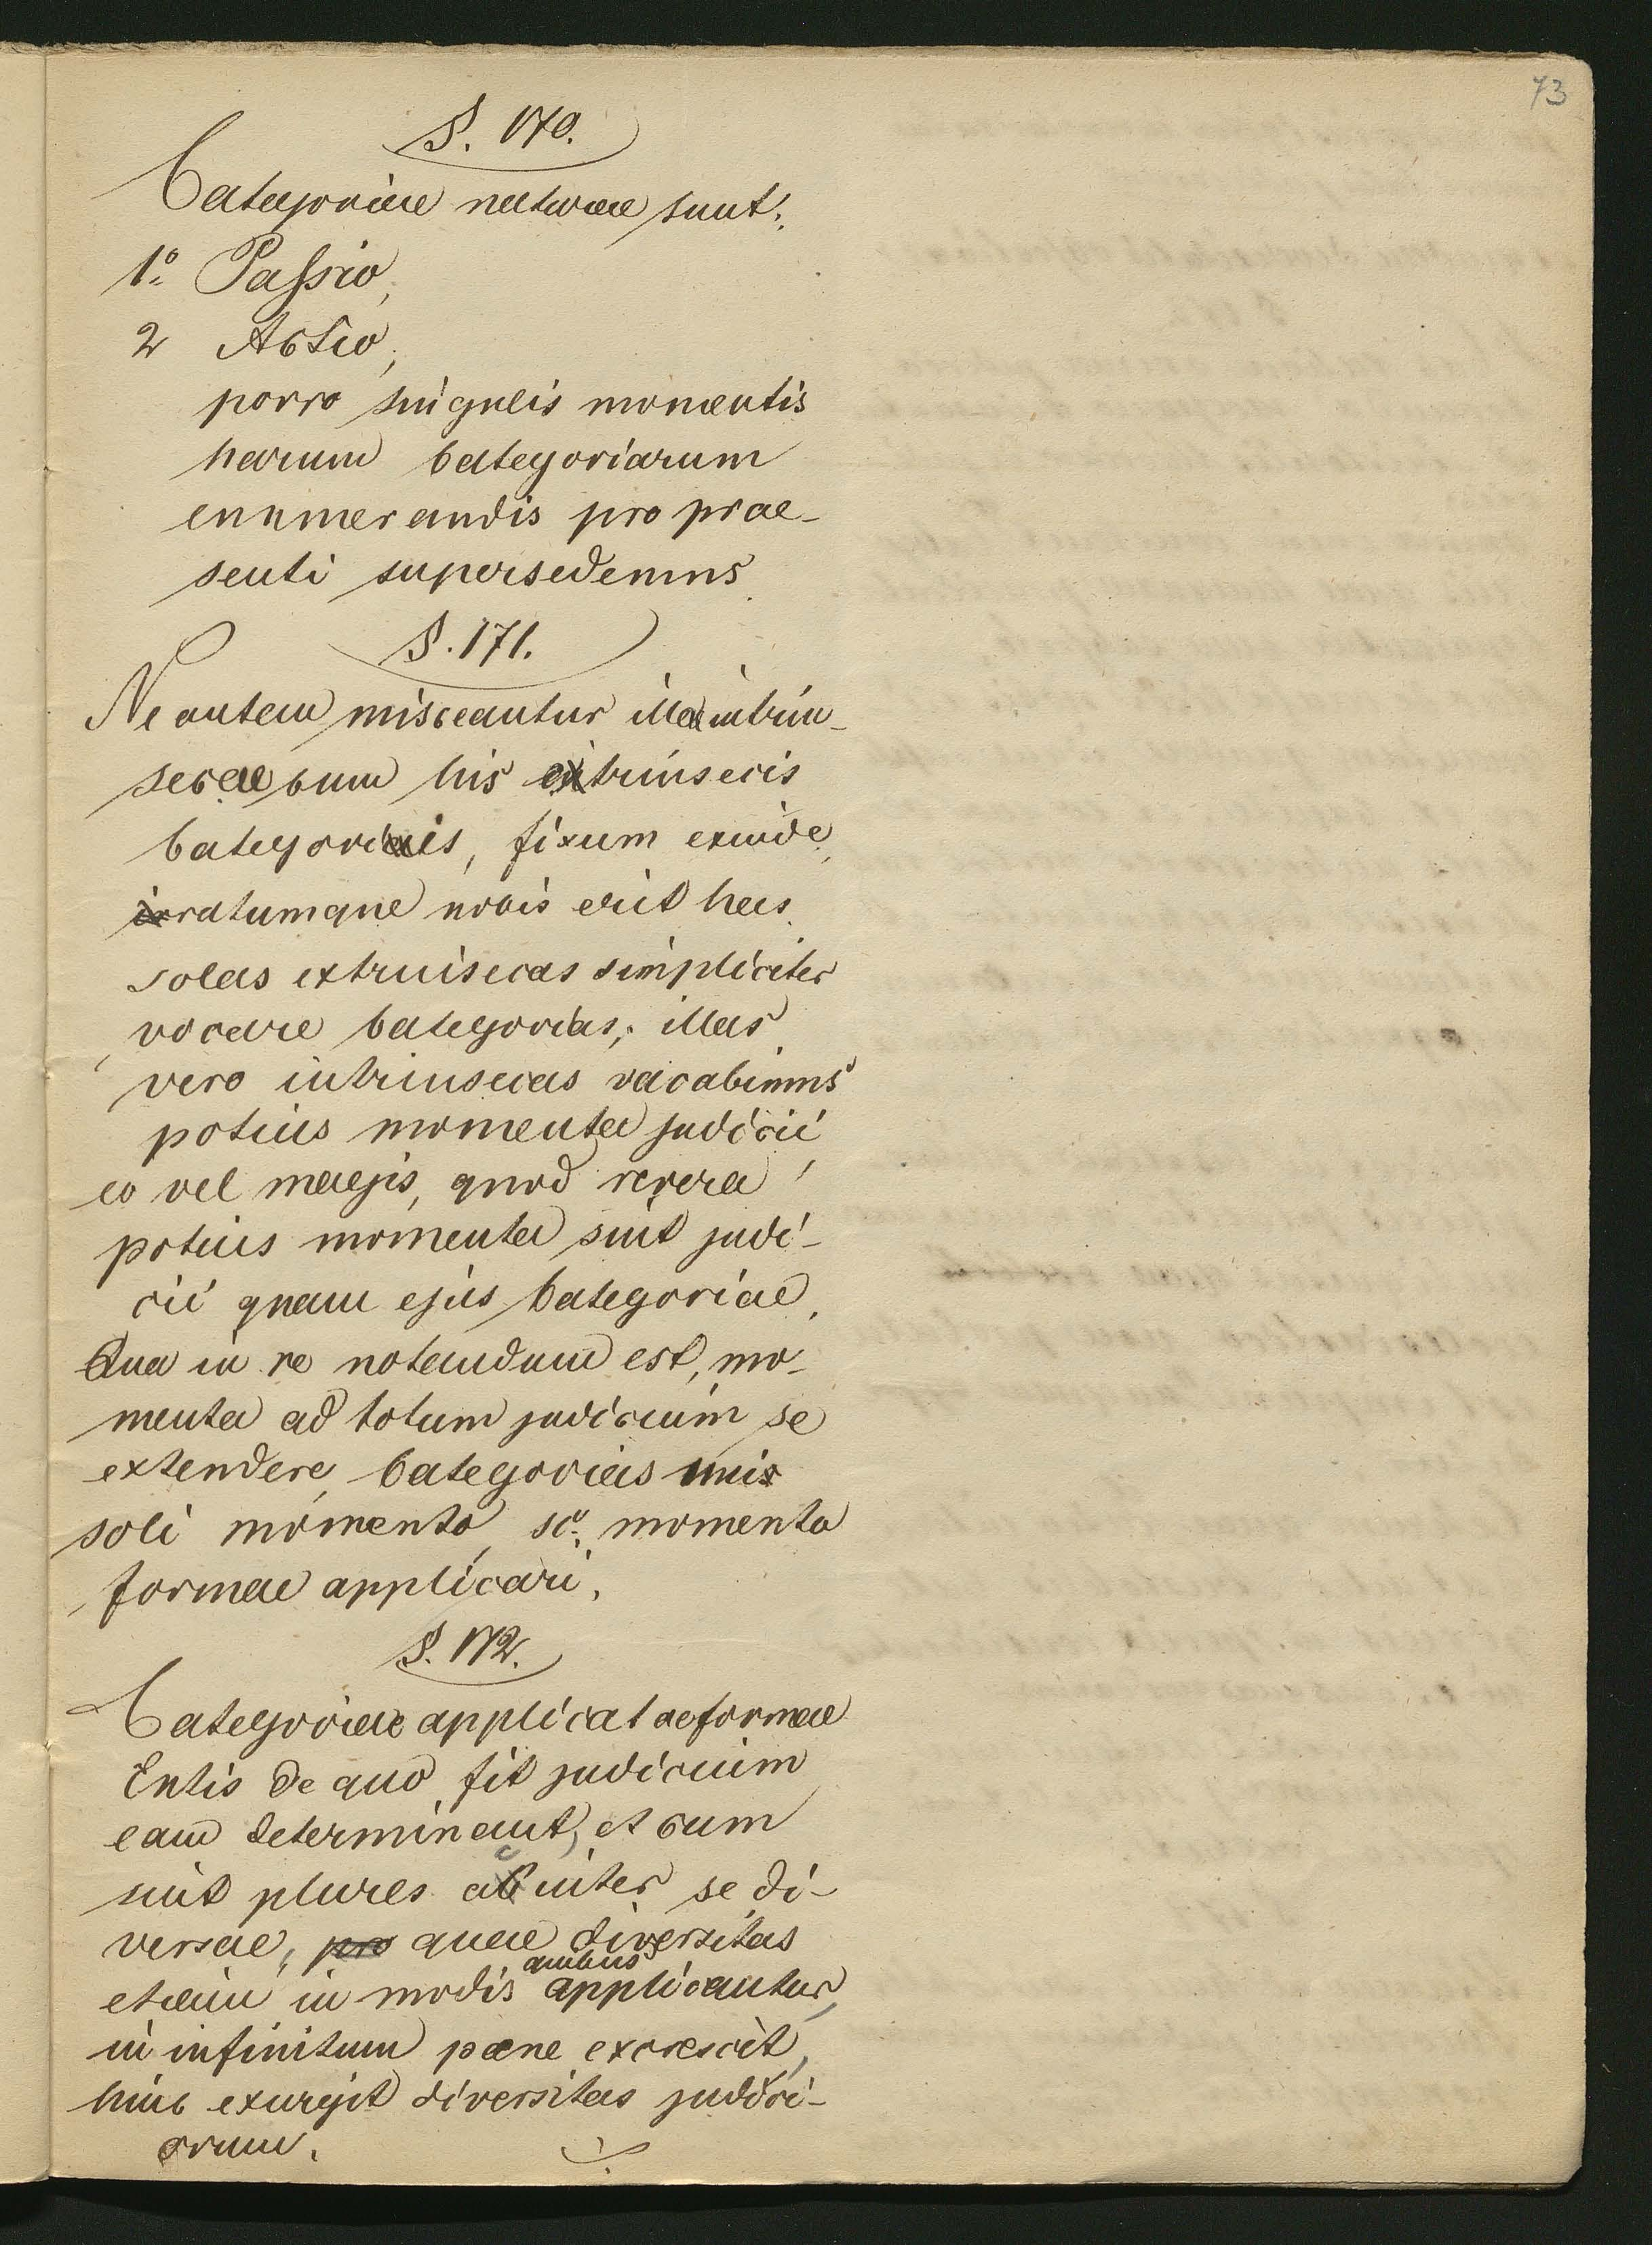 73
§. 170.
Categoriae naturae sunt:
1º Passio,
2 Actio,
porro singulis momentis
harum Categoriarum
enumerandis pro prae-
senti supersedemus.
§. 171.
Ne autem misceantur illae intrin-
secae cum his extrinsecis
Categoriis, fixum exinde,
ratumque nobis erit has
solas extrinsecas simpliciter
vocare Categorias; illas
vero intrinsecas vocabimus
potius momenta judicii
eo vel magis, quod revera
potius momenta sint judi-
cii quam ejus Categoriae.
Qua in re notandum est, mo-
menta ad totum judicium se
extendere, Categorias uni
soli momento, sc. momento
formae applicari.
§. 172.
Categoriae applicatae formae
Entis de quo fit judicium
eam determinant, et cum
sint plures ac inter se di-
versae, pro quae diversitas
etiam in modis quibus applicantur,
in infinitum pene excrescit,
hinc exurgit diversitas judici-
orum.